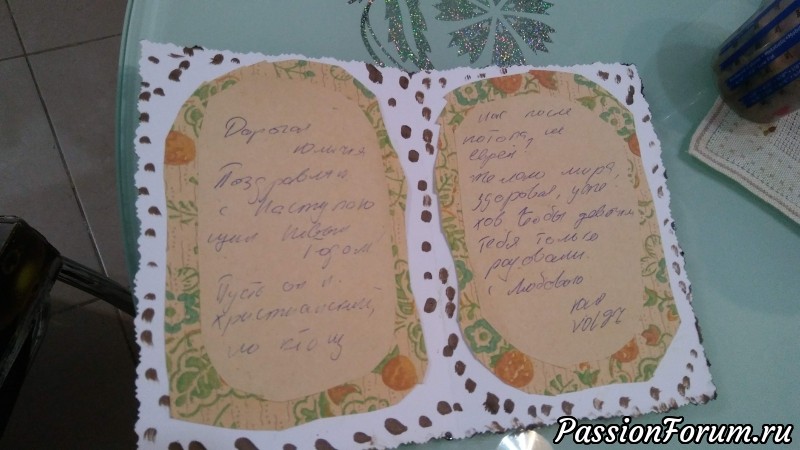 Дорогая
Юличка
Поздравляю
с Наступаю
щим Новым
Годом
Пусть он и
Христианский,
но кто из
нас после
потопа, не
еврей?
Желаю мира,
здоровья, успе
хов чтобы девочки
тебя только
радовали.
с Любовью
Юля
PassionForum.ru